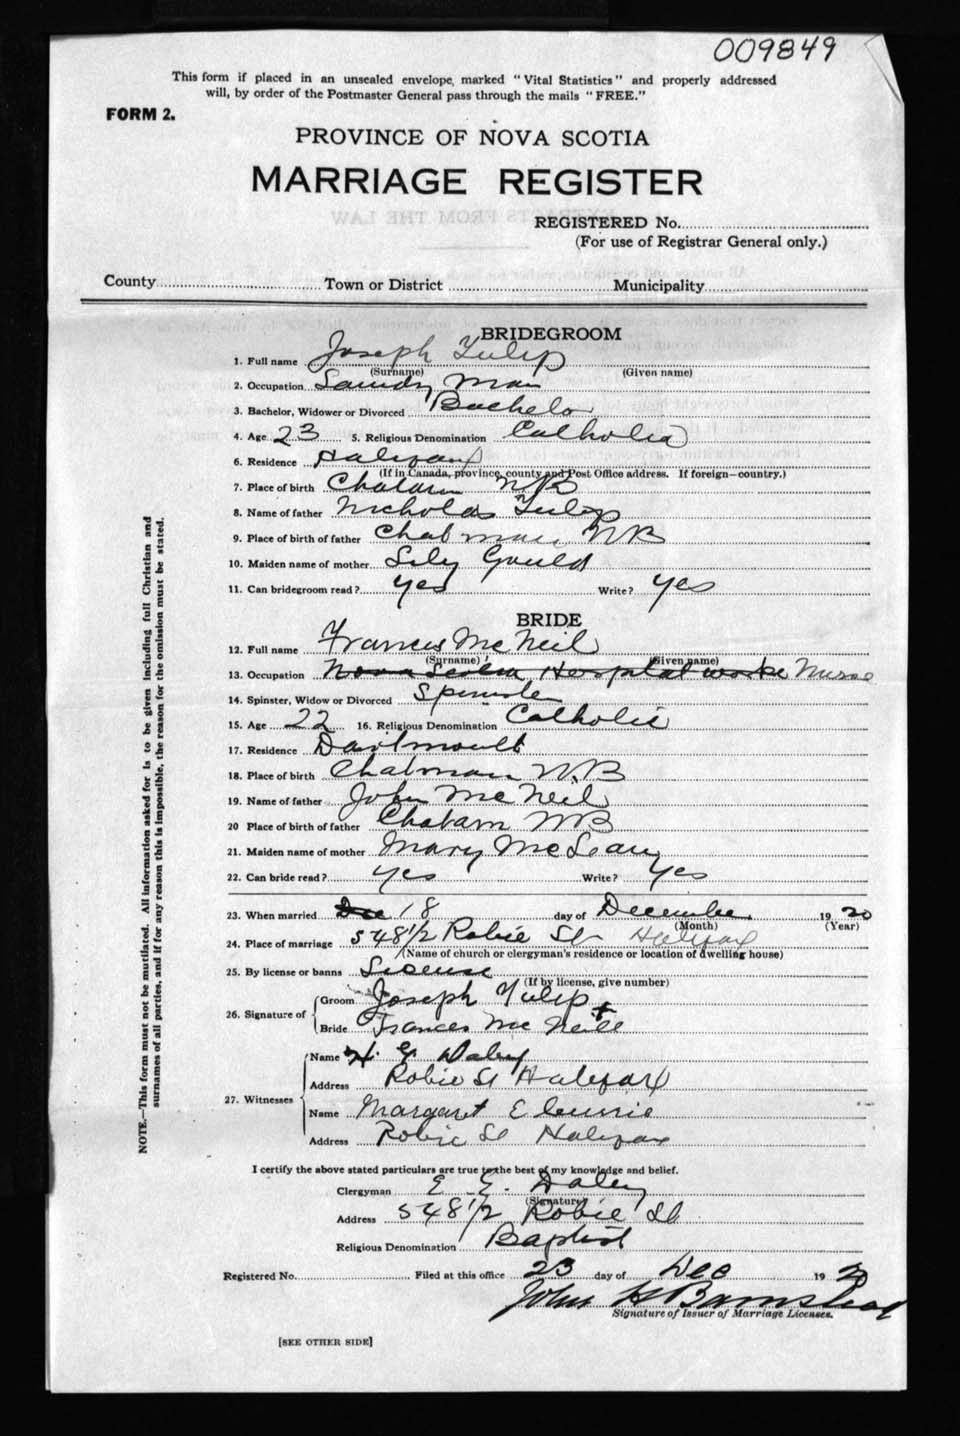 009849
This form if placed in an unsealed envelope, marked "Vital Statistics" and properly addressed
will, by order of the Postmaster General pass through the mails "FREE."
FORM 2.
PROVINCE OF NOVA SCOTIA
MARRIAGE REGISTER
REGISTERED No.
(For use of Registrar General only.)
County Town or District Municipality
BRIDEGROOM
1. Full name Joseph Tulip
(Surname) (Given name)
2. Occupation Laundry Man
3. Bachelor, Widower or Divorced Bachelor
4. Age 23 5. Religious Denomination Catholic
6. Residence Halifax
(If in Canada, province, county and Post Office address. If foreign—country.)
7. Place of birth Chatam NB
8. Name of father Nicholas Tulip
9. Place of birth of father Chatman NB
10. Maiden name of mother Lily Gould
11. Can bridegroom read? yes Write? yes
BRIDE
12. Full name Frances McNeil
(Surname) (Given name)
13. Occupation Nova Scotia Hospital worker Nurse
14. Spinster, Widow or Divorced Spinster
15. Age 22 16. Religious Denomination Catholic
17. Residence Dartmouth
18. Place of birth Chatman N.B
19. Name of father John McNeil
20 Place of birth of father Chatam NB
21. Maiden name of mother Mary McLean
22. Can bride read? yes Write? yes
23. When married Dec 18 day of December 1920
(Month) (Year)
24. Place of marriage 548 1/2 Robie St Halifax
(Name of church or clergyman's residence or location of dwelling house)
25. By license or banns License
(If by license, give number)
26. Signature of
Groom Joseph Tulip
Bride Frances McNeill
27. Witnesses
Name H. G Daley
Address Robie St Halifax
Name Margaret
Address Robie St Halifax
I certify the above stated particulars are true to the best of my knowledge and belief.
Clergyman E. E. Daley
(Signature)
Address 548 1/2 Robie St
Religious Denomination Baptist
Registered No. Filed at this office 23 day of Dec 1920
John H Barnstead
Signature of Issuer of Marriage Licenses.
[SEE OTHER SIDE]
NOTE.—This form must not be mutilated. All information asked for is to be given including full Christian and
surnames of all parties, and if for any reason this is impossible, the reason for the omission must be stated.